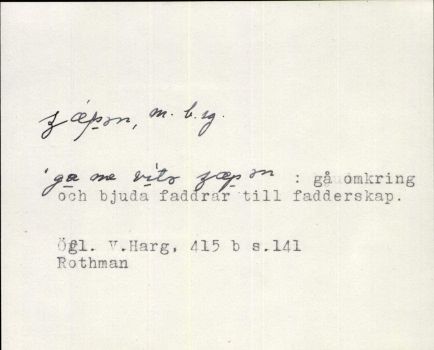 ʒǽpən, m. b. sg.
'ga me vito ʒæpən : gå omkring
och bjuda faddrar till fadderskap.
Ögl. V.Harg, 415 b s.141
Rothman